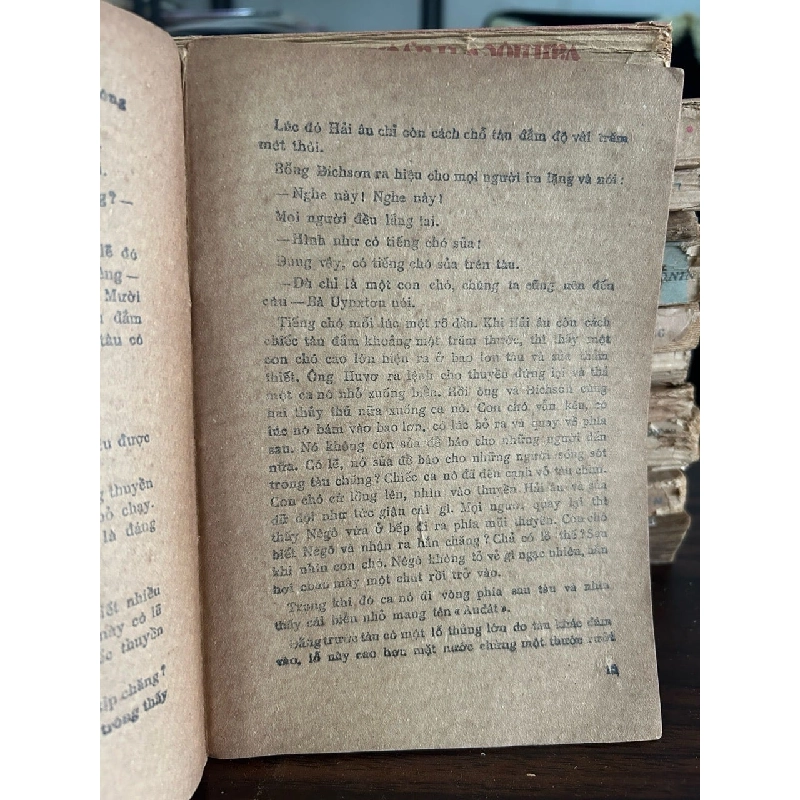 ông
g? —
lẽ đó
ếng —
Mười
u đắm
tàu có
u được
g thuyền
bỏ chạy.
là đáng
iết nhiều
này có lẽ
ếc thuyền
ịp chăng?
trông thấy
Lúc đó Hải âu chỉ còn cách chỗ tàu đắm độ vài trăm
mét thôi.
Bỗng Đichsơn ra hiệu cho mọi người im lặng và nói :
— Nghe này! Nghe này!
Mọi người đều lắng tai.
— Hình như có tiếng chó sủa!
Đúng vậy, có tiếng chó sủa trên tàu.
— Dù chỉ là một con chó, chúng ta cũng nên đến
cứu — Bà Uynxtơn nói.
Tiếng chó mỗi lúc một rõ dần. Khi Hải âu còn cách
chiếc tàu đắm khoảng một trăm thước, thì thấy một
con chó cao lớn hiện ra ở bao lơn tàu và sủa thảm
thiết. Ông Huyơ ra lệnh cho thuyền dừng lại và thả
một ca nô nhỏ xuống biển. Rồi ông và Đichsơn cùng
hai thủy thủ nữa xuống ca nô. Con chó vẫn kêu, có
lúc nó bám vào bao lơn, có lúc bỏ ra và quay về phía
sau. Nó không còn sủa để báo cho những người đến
nữa. Có lẽ, nó sủa để báo cho những người sống sót
trong tàu chăng? Chiếc ca nô đã đến cạnh vỏ tàu chìm.
Con chó cứ lồng lên, nhìn vào thuyền Hải âu và sủa
dữ dội như tức giận cái gì. Mọi người quay lại thì
thấy Nêgô vừa ở bếp đi ra phía mũi thuyền. Con chó
biết Nêgô và nhận ra hắn chăng? Chả có lẽ thế? Sau
khi nhìn con chó. Nêgô không tỏ vẻ gì ngạc nhiên, hắn
hơi chau mày một chút rồi trở vào.
Trong khi đó ca nô đi vòng phía sau tàu và nhìn
thấy cái biển nhỏ mang tên « Auđát ».
Đằng trước tàu có một lỗ thủng lớn do tàu khác đâm
vào, lỗ này cao hơn mặt nước chừng một thước rưỡi
15